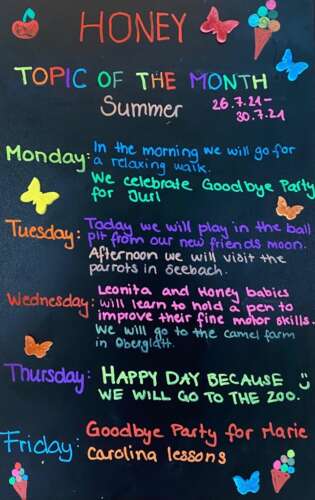 HONEY
TOPIC OF THE MONTH
Summer
26.7.21-
30.7.21
Monday: In the morning we will go for
a relaxing walk.
We celebrate Goodbye Party
for Juri
Tuesday: Today we will play in the ball
pit from our new friends moon.
Afternoon we will visit the
parrots in Seebach.
Wednesday: Leonita and Honey babies
will learn to hold a pen to
improve their fine motor skills.
We will go to the camel farm
in Oberglatt.
Thursday: HAPPY DAY BECAUSE
WE WILL GO TO THE ZOO.
Friday: Goodbye Party for Marie
carolina lessons